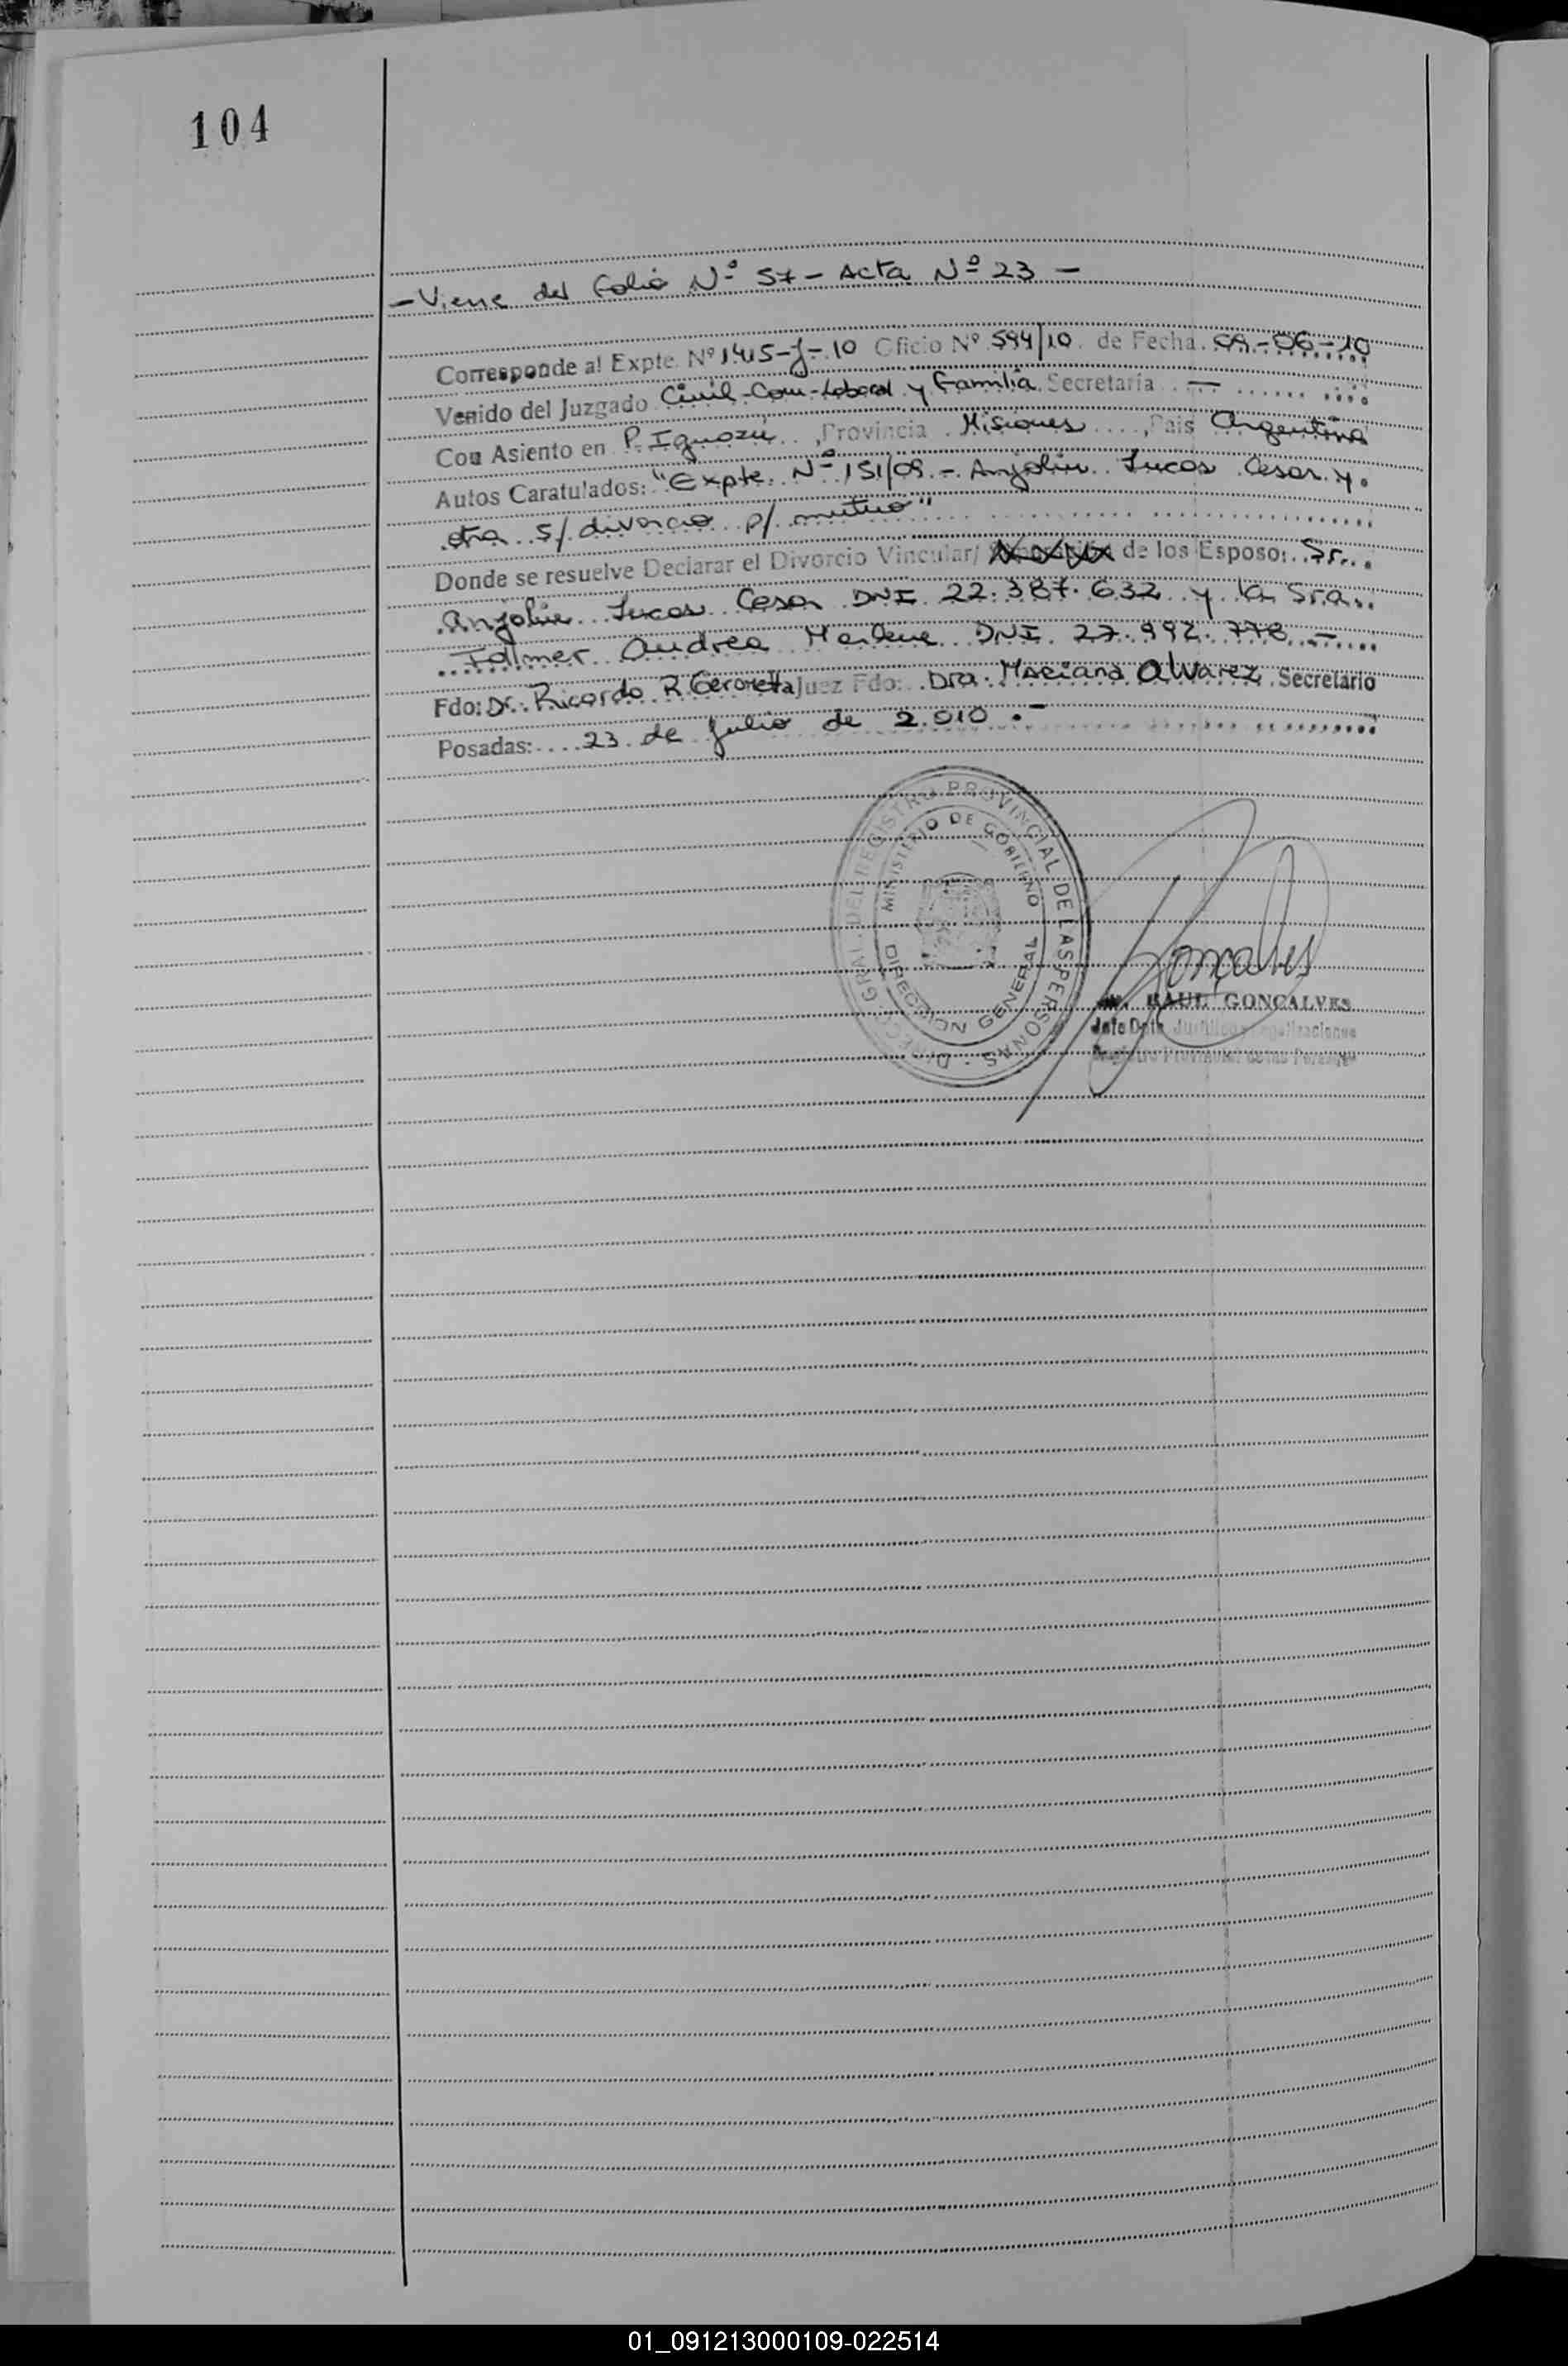 104
- Viene del Folio Nº 57 - Acta Nº 23 -
Corresponde al Expte. Nº 1415-J-10 Oficio Nº 594/10. de Fecha. 09-06-10
Venido del Juzgado Civil-Com-Laboral y Familia Secretaria . —
Con Asiento en P. Iguazú , Provincia . Misiones ...., Pais Argentina
Autos Caratulados: "Expte. Nº 151/09.- Anjolin Lucas Cesar y.
otra s/ divorcio p/ mutuo"
Donde se resuelve Declarar el Divorcio Vincular/ de los Esposo: Sr...
Lucas Cesar DNI 22.387.632 y la Sra..
Follmer Andrea Marlene DNI. 27.992.778.-
Fdo: Dr. Ricardo R. Juez Fdo: Dra. Mariana Alvarez Secretario
Posadas: .... 23 de Julio de 2.010.-
DIRECC. GRAL. DEL REGISTRO PROVINCIAL DE LAS PERSONAS
MINISTERIO DE GOBIERNO
DIRECCION GENERAL
Goncalves
RAUL GONCALVES
Jefe Dpto. Legalizaciones
Registro Provincial de las Personas
01_091213000109-022514